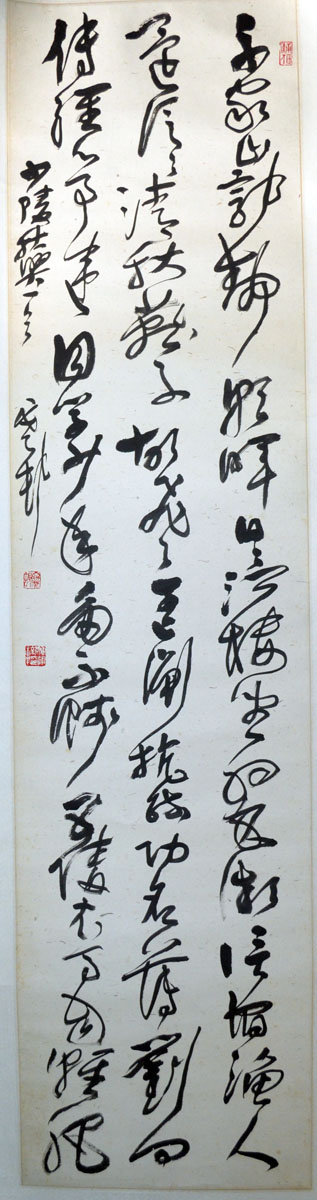 千家山郭靜朝暉日日江樓坐翠微信宿漁人
還泛泛清秋燕子故飛飛匡衡抗疏功名薄劉向
傳經心事違同學少年多不賤五陵衣馬自輕肥
少陵秋興一首